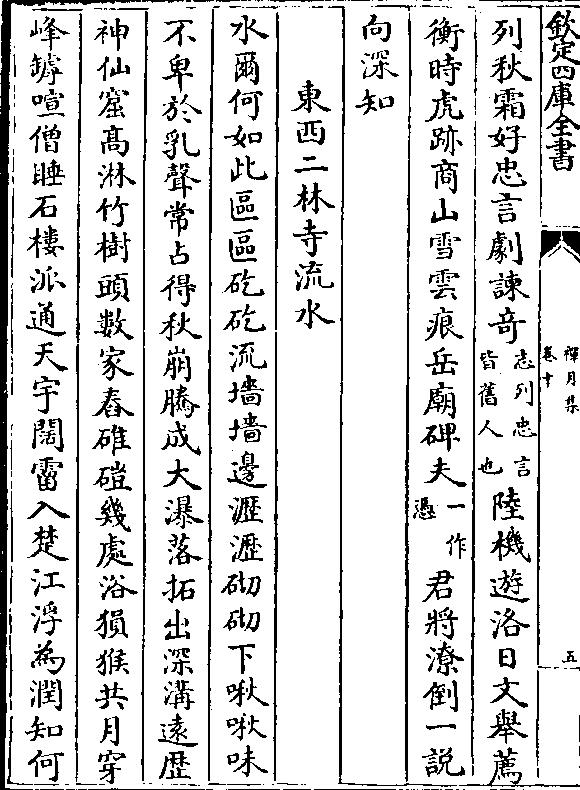 欽定四庫全書
禪月集
卷十
五
列秋霜好忠言劇諫竒志列忠言皆舊人也陸機遊洛日文舉薦
衡時虎跡商山雪雲痕岳廟碑夫一作憑君將潦倒一説
向深知
東西二林寺流水
水爾何如此區區矻矻流墻墻邊瀝瀝砌砌下啾啾味
不卑於乳聲常占得秋崩騰成大瀑落拓出深溝遠歴
神仙窟髙淋竹樹頭数家舂碓磑幾處浴猨猴共月穿
峰罅喧僧睡石樓派通天宇闊霤入楚江浮為潤知何